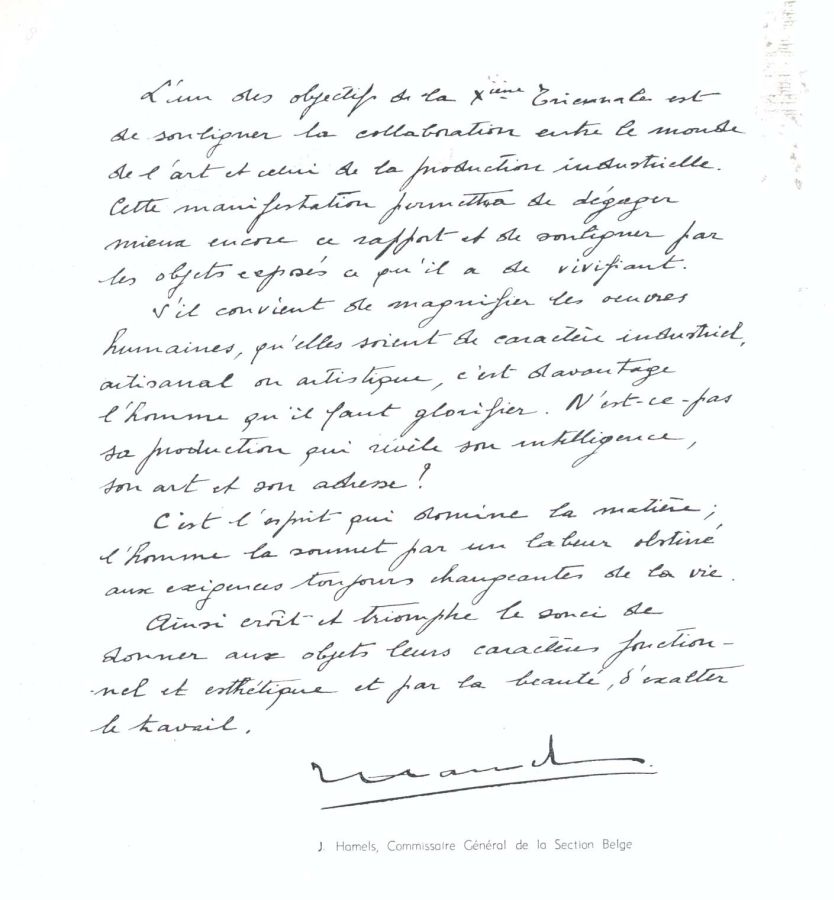 L'un des objectifs de la Xième Triennale est
de souligner la collaboration entre le monde
de l'art et celui de la production industrielle.
Cette manifestation permettra de dégager
mieux encore ce rapport et de souligner par
les objets exposés ce qu'il a de vivifiant.
S'il convient de magnifier les oeuvres
humaines, qu'elles soient de caractère industriel,
artisanal ou artistique, c'est davantage
l'homme qu'il faut glorifier. N'est-ce-pas
sa production qui révèle son intelligence,
son art et son adresse?
C'est l'esprit qui domine la matière;
l'homme la soumet par un labeur obstiné
aux exigences toujours changeantes de la vie.
Ainsi croît et triomphe le souci de
donner aux objets leurs caractères fonction-
nel et esthétique et par la beauté, d'exalter
le travail.
J. Hamels, Commissaire Général de la Section Belge